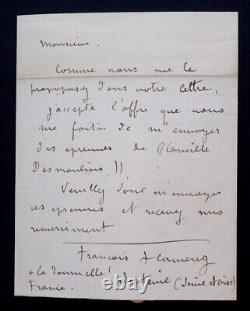 Monsieur,
Comme vous me le
proposez dans votre lettre,
j'accepte l'offre que vous
me faites de m'envoyer
des epreuves de Camille
Desmoulins.
Veuillez donc m'envoyer
ces epreuves et recevez mes
remerciement
François Flameng
à la Tournelle! Septeuil (Seine et oise)
France.